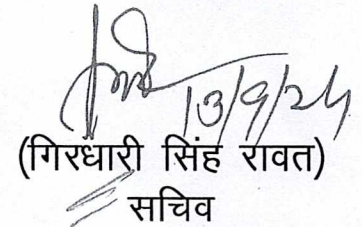 13/9/24
(गिरधारी सिंह रावत)
सचिव